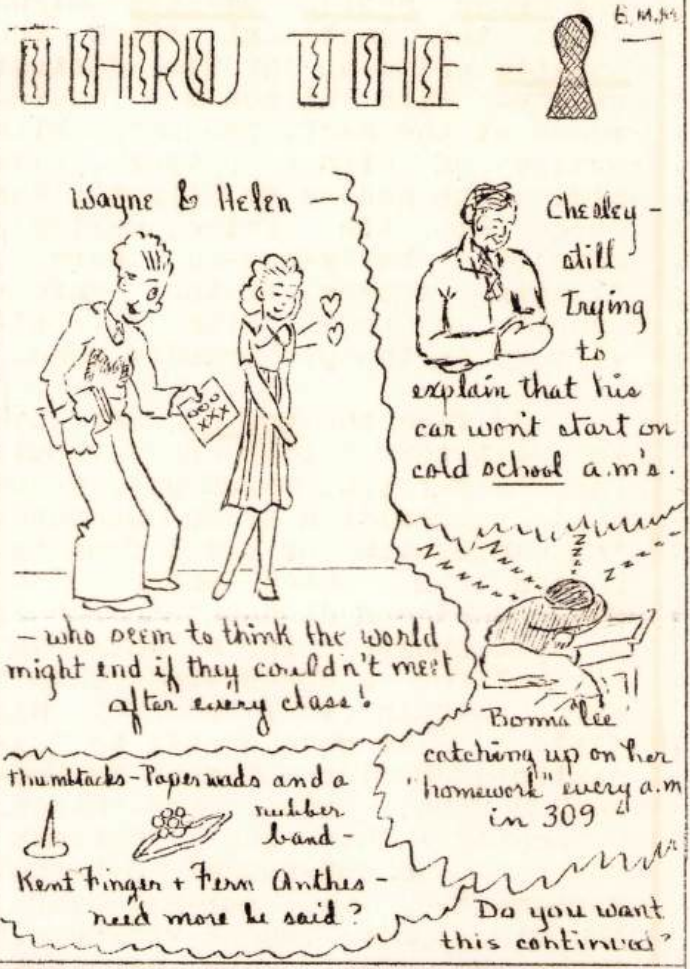 E.M.M.
THRU THE -
Wayne & Helen -
OOO
XXX
- who seem to think the world
might end if they couldn't meet
after every class!
Chesley -
still
Trying
to
explain that his
car won't start on
cold school a.m's.
ZZZZ
Bonna Lee
catching up on her
"homework" every a.m
in 309
thumbtacks - Paperwads and a
rubber
band -
Kent Finger + Fern Anthes -
need more be said?
Do you want
this continued?